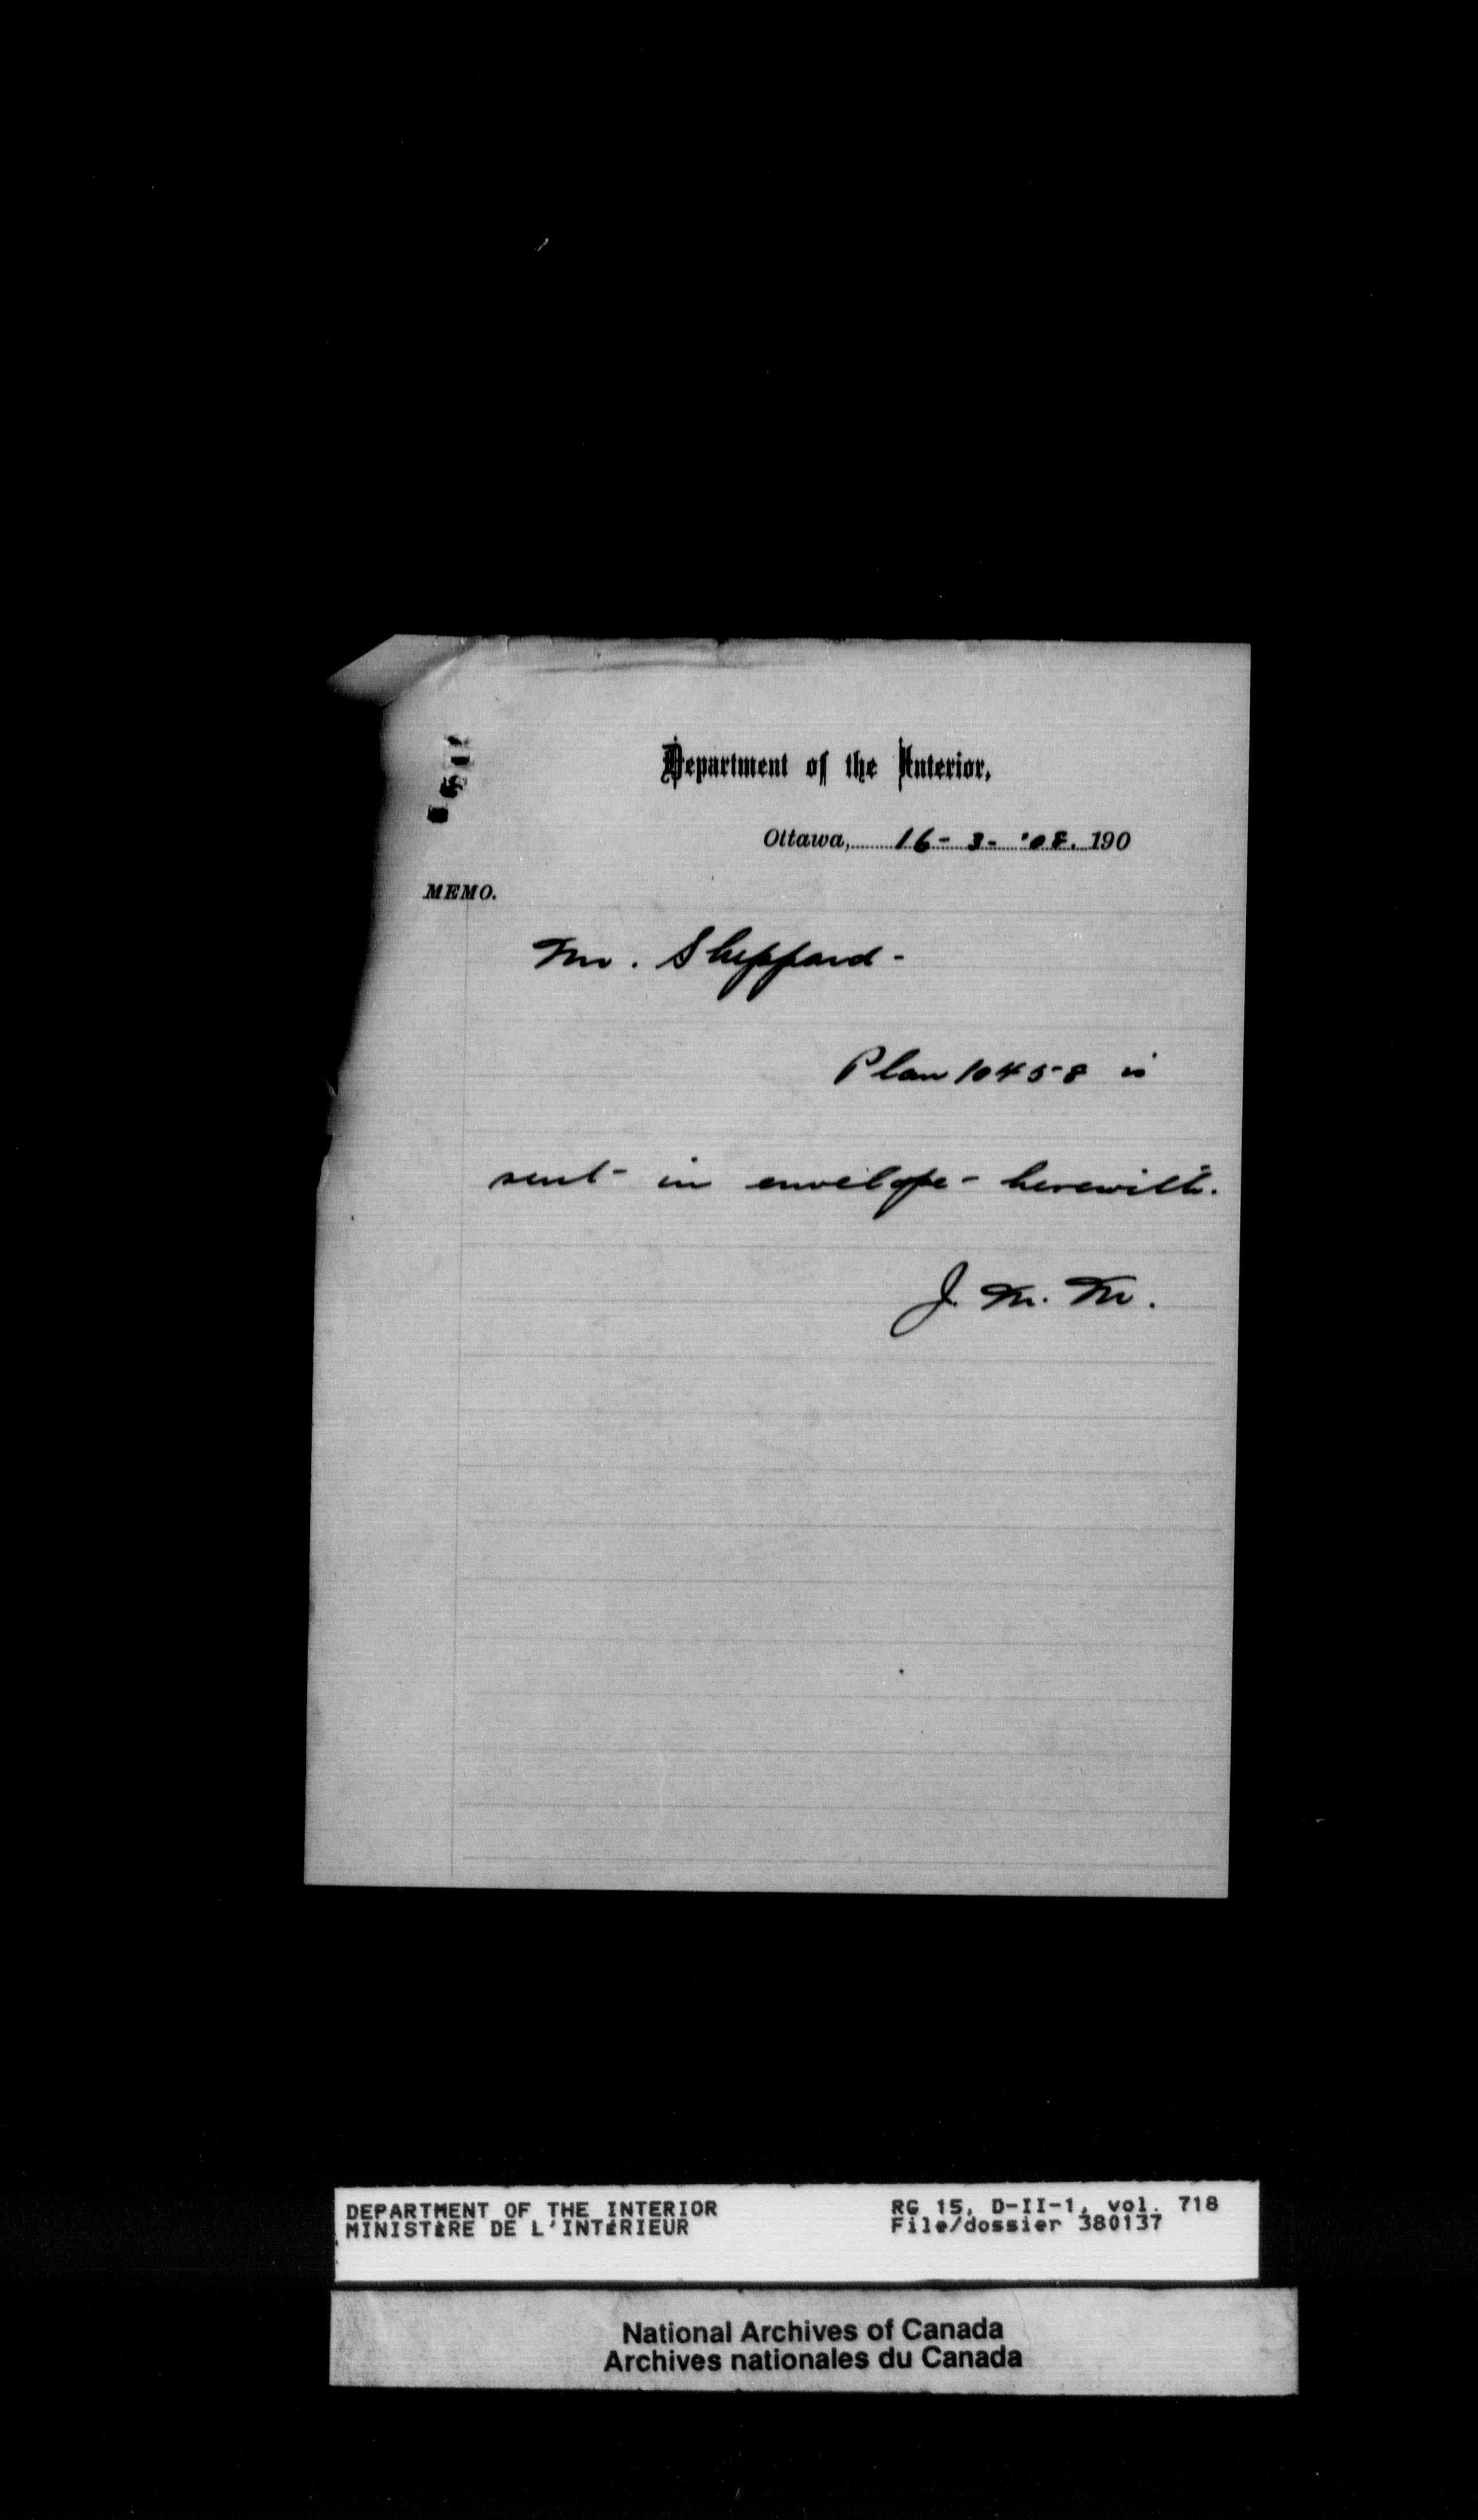 Department of the Interior,
Ottawa, 16-3-'08. 190
MEMO.
Mr. Sheppard-
Plan 10458 is
sent in envelope - herewith.
J. M. M.
DEPARTMENT OF THE INTERIOR
MINISTÈRE DE L'INTÉRIEUR
RG 15, D-II-1, vol. 718
File/dossier 380137
National Archives of Canada
Archives nationales du Canada